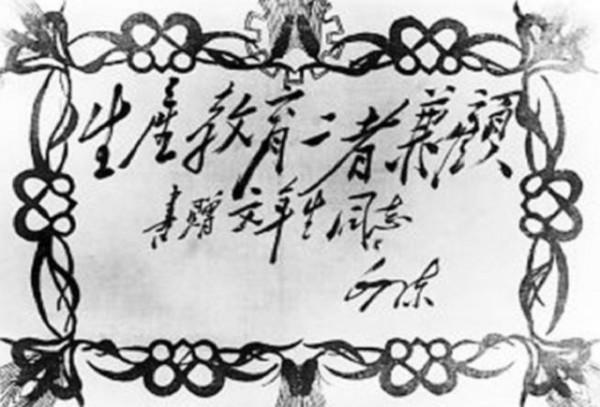 生產教育二者兼顧
書贈文年生同志
毛澤東